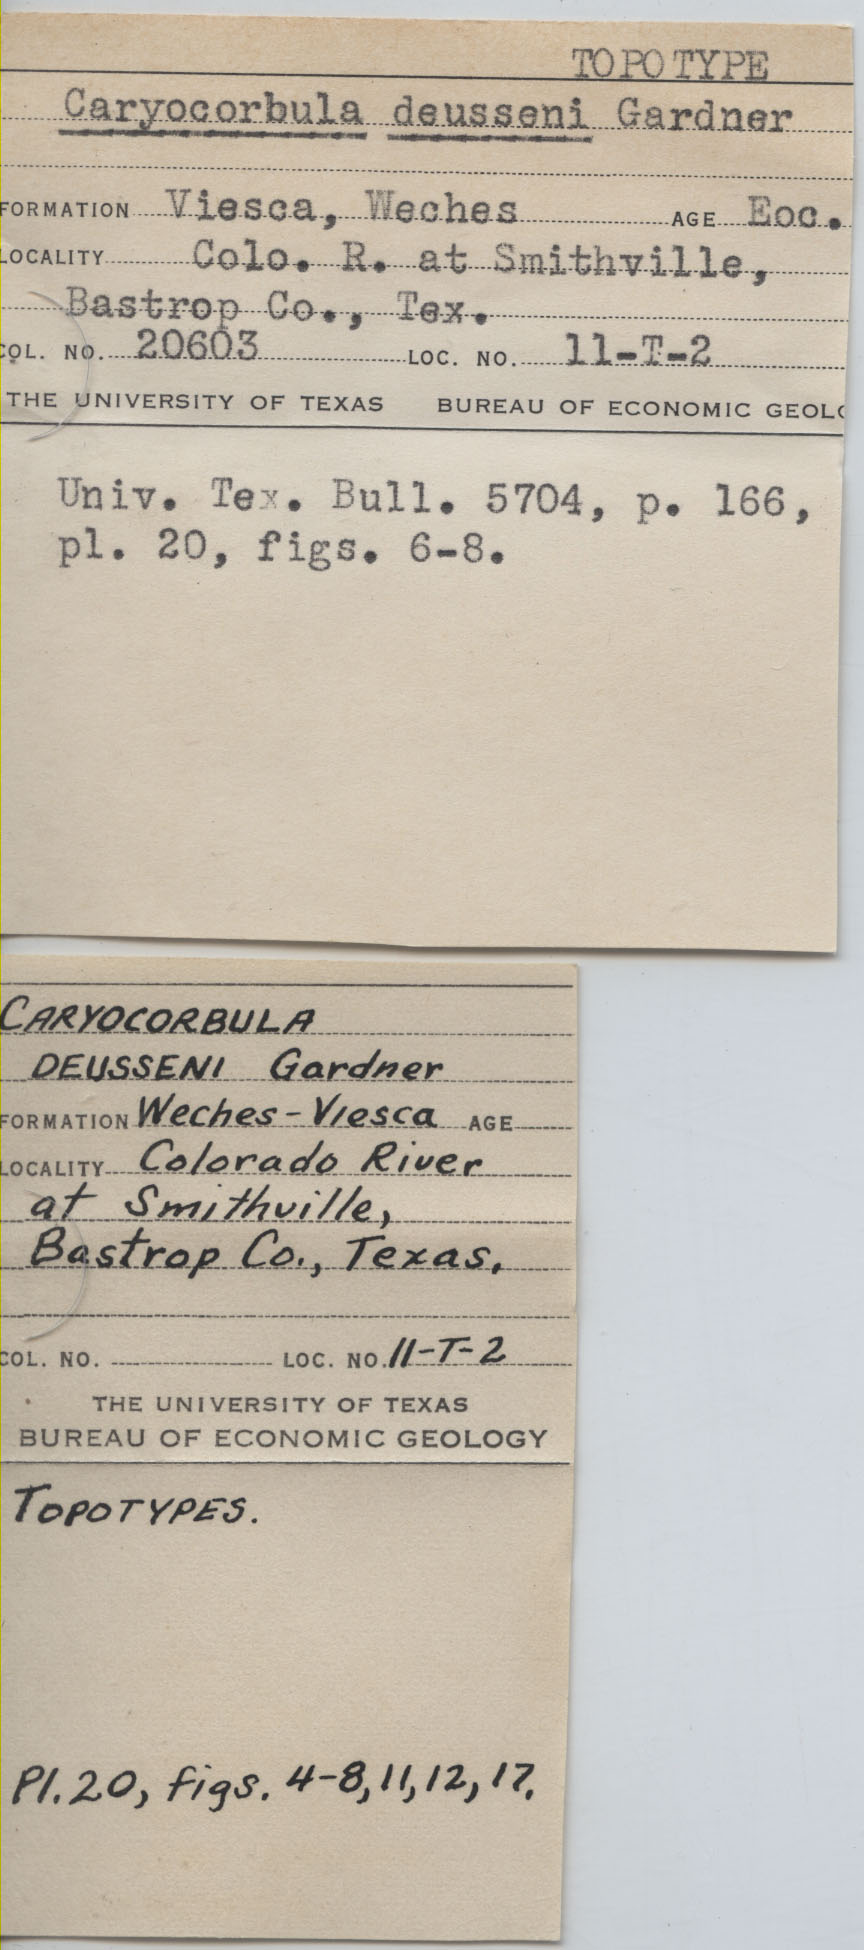 TOPOTYPE
Caryocorbula deusseni Gardner
FORMATION Viesca, Weches AGE Eoc.
LOCALITY Colo. R. at Smithville,
Bastrop Co., Tex.
COL. NO. 20603 LOC. NO. 11-T-2
THE UNIVERSITY OF TEXAS BUREAU OF ECONOMIC GEOLO
Univ. Tex. Bull. 5704, p. 166,
pl. 20, figs. 6-8.
CARYOCORBULA
DEUSSENI Gardner
FORMATION Weches-Viesca AGE
LOCALITY Colorado River
at Smithville,
Bastrop Co., Texas.
COL. NO. LOC. NO. 11-T-2
THE UNIVERSITY OF TEXAS
BUREAU OF ECONOMIC GEOLOGY
TOPOTYPES.
Pl. 20, figs. 4-8, 11, 12, 17.